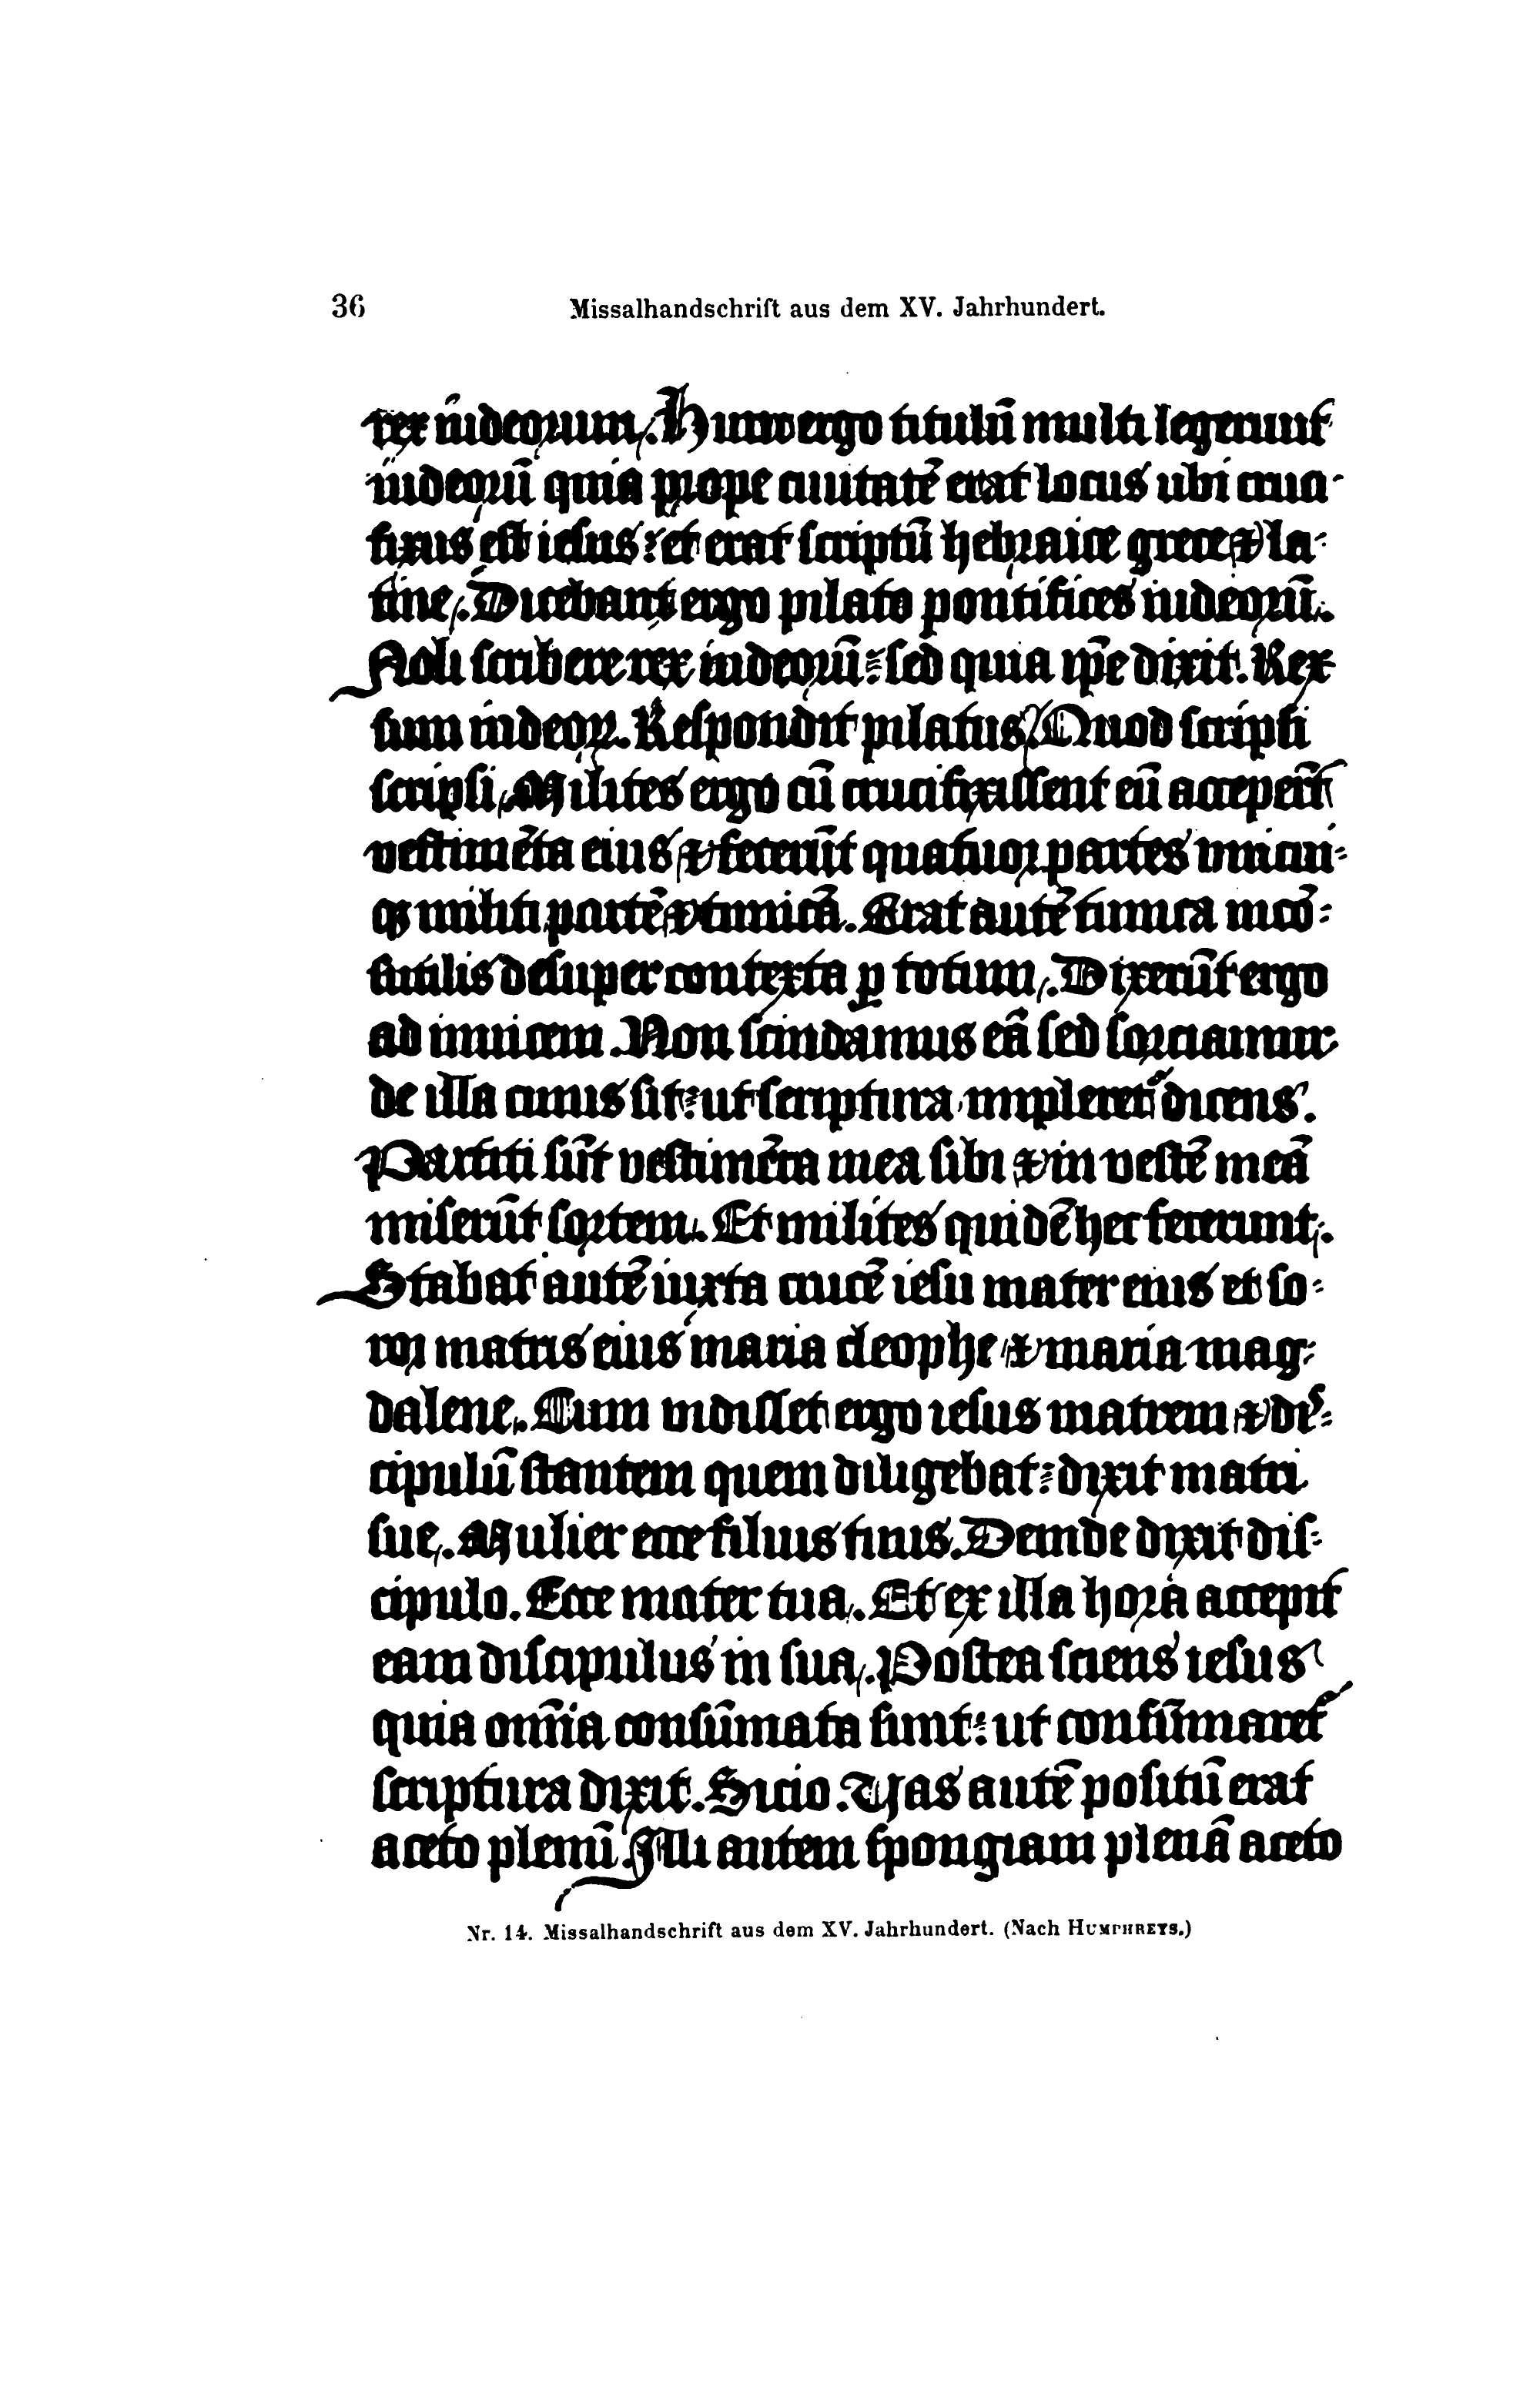 36
Missalhandschrift aus dem XV. Jahrhundert.
rex iudeorum. Hunc ergo titulū multi legerunt
iudeorū quia prope ciuitatē erat locus ubi cruci-
fixus est iesus: et erat scriptū hebraice grece & la-
tine. Dicebant ergo pilato pontifices iudeorū.
Noli scribere rex iudeorū: sed quia ip̄e dixit. Rex
sum iudeoꝝ. Respondit pilatus. Quod scripsi
scripsi. Milites ergo cū crucifixissent eū acceper̄t
vestimēta eius & fecerūt quatuor partes vnicui-
qꝫ militi partē & tunicā. Erat autē tunica incō-
sutilis desuper contexta ꝑ totum. Dixerūt ergo
ad inuicem. Non scindamus eā sed sorciamur
de illa cuius sit: ut scriptura impleret᷑ dicens.
Partiti sūt vestimēta mea sibi & in vestē meā
miserūt sortem. Et milites quidē hec fecerunt.
Stabat autē iuxta crucē iesu mater eius et so-
ror matris eius maria cleophe & maria mag-
dalene. Cum vidisset ergo iesus matrem & diˢ-
cipulū stantem quem diligebat: dixit matri
sue. Mulier ecce filius tuus. Deinde dixit dis-
cipulo. Ecce mater tua. Et ex illa hora accepit
eam discipulus in sua. Postea sciens iesus
quia om̄ia consūmata sunt: ut consūmaret᷑
scriptura dixit. Sicio. Vas autē positū erat
aceto plenū. Illi autem spongiam plenā aceto
Nr. 14. Missalhandschrift aus dem XV. Jahrhundert. (Nach HUMPHREYS.)